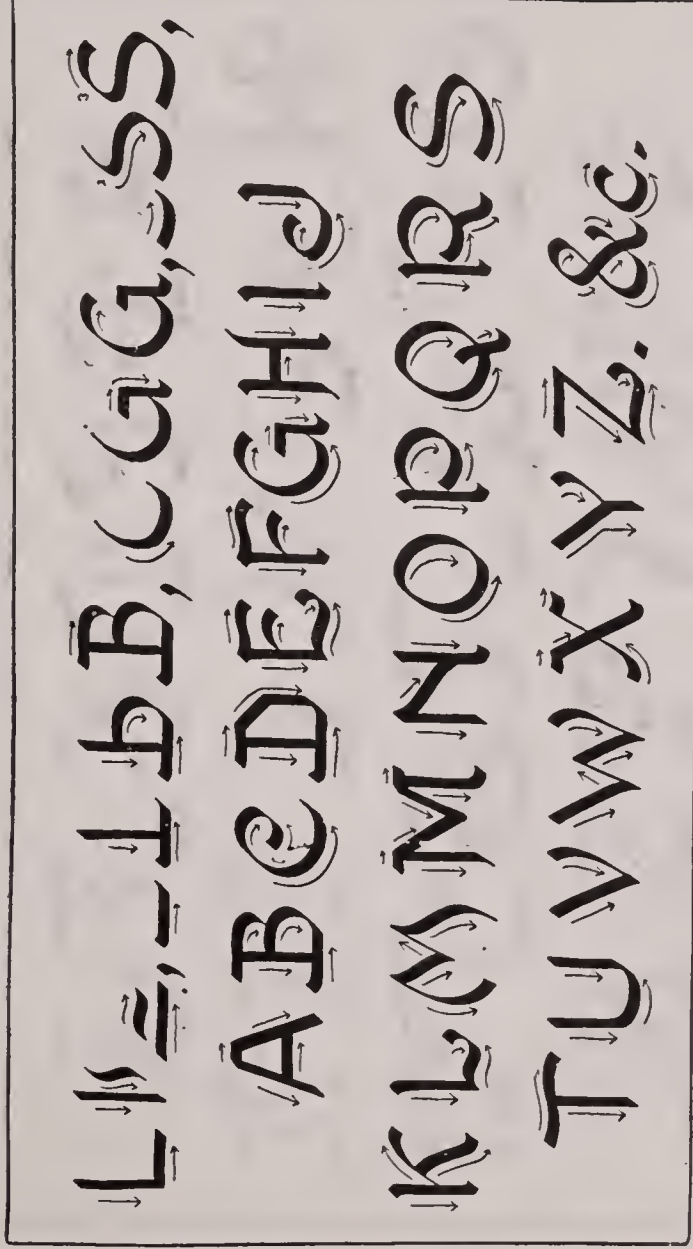 L || =, – ⊥ b B, C G G, S S,
A B C D E F G H I J
K L (V) M N O P Q R S
T U V W X Y Z. &c.